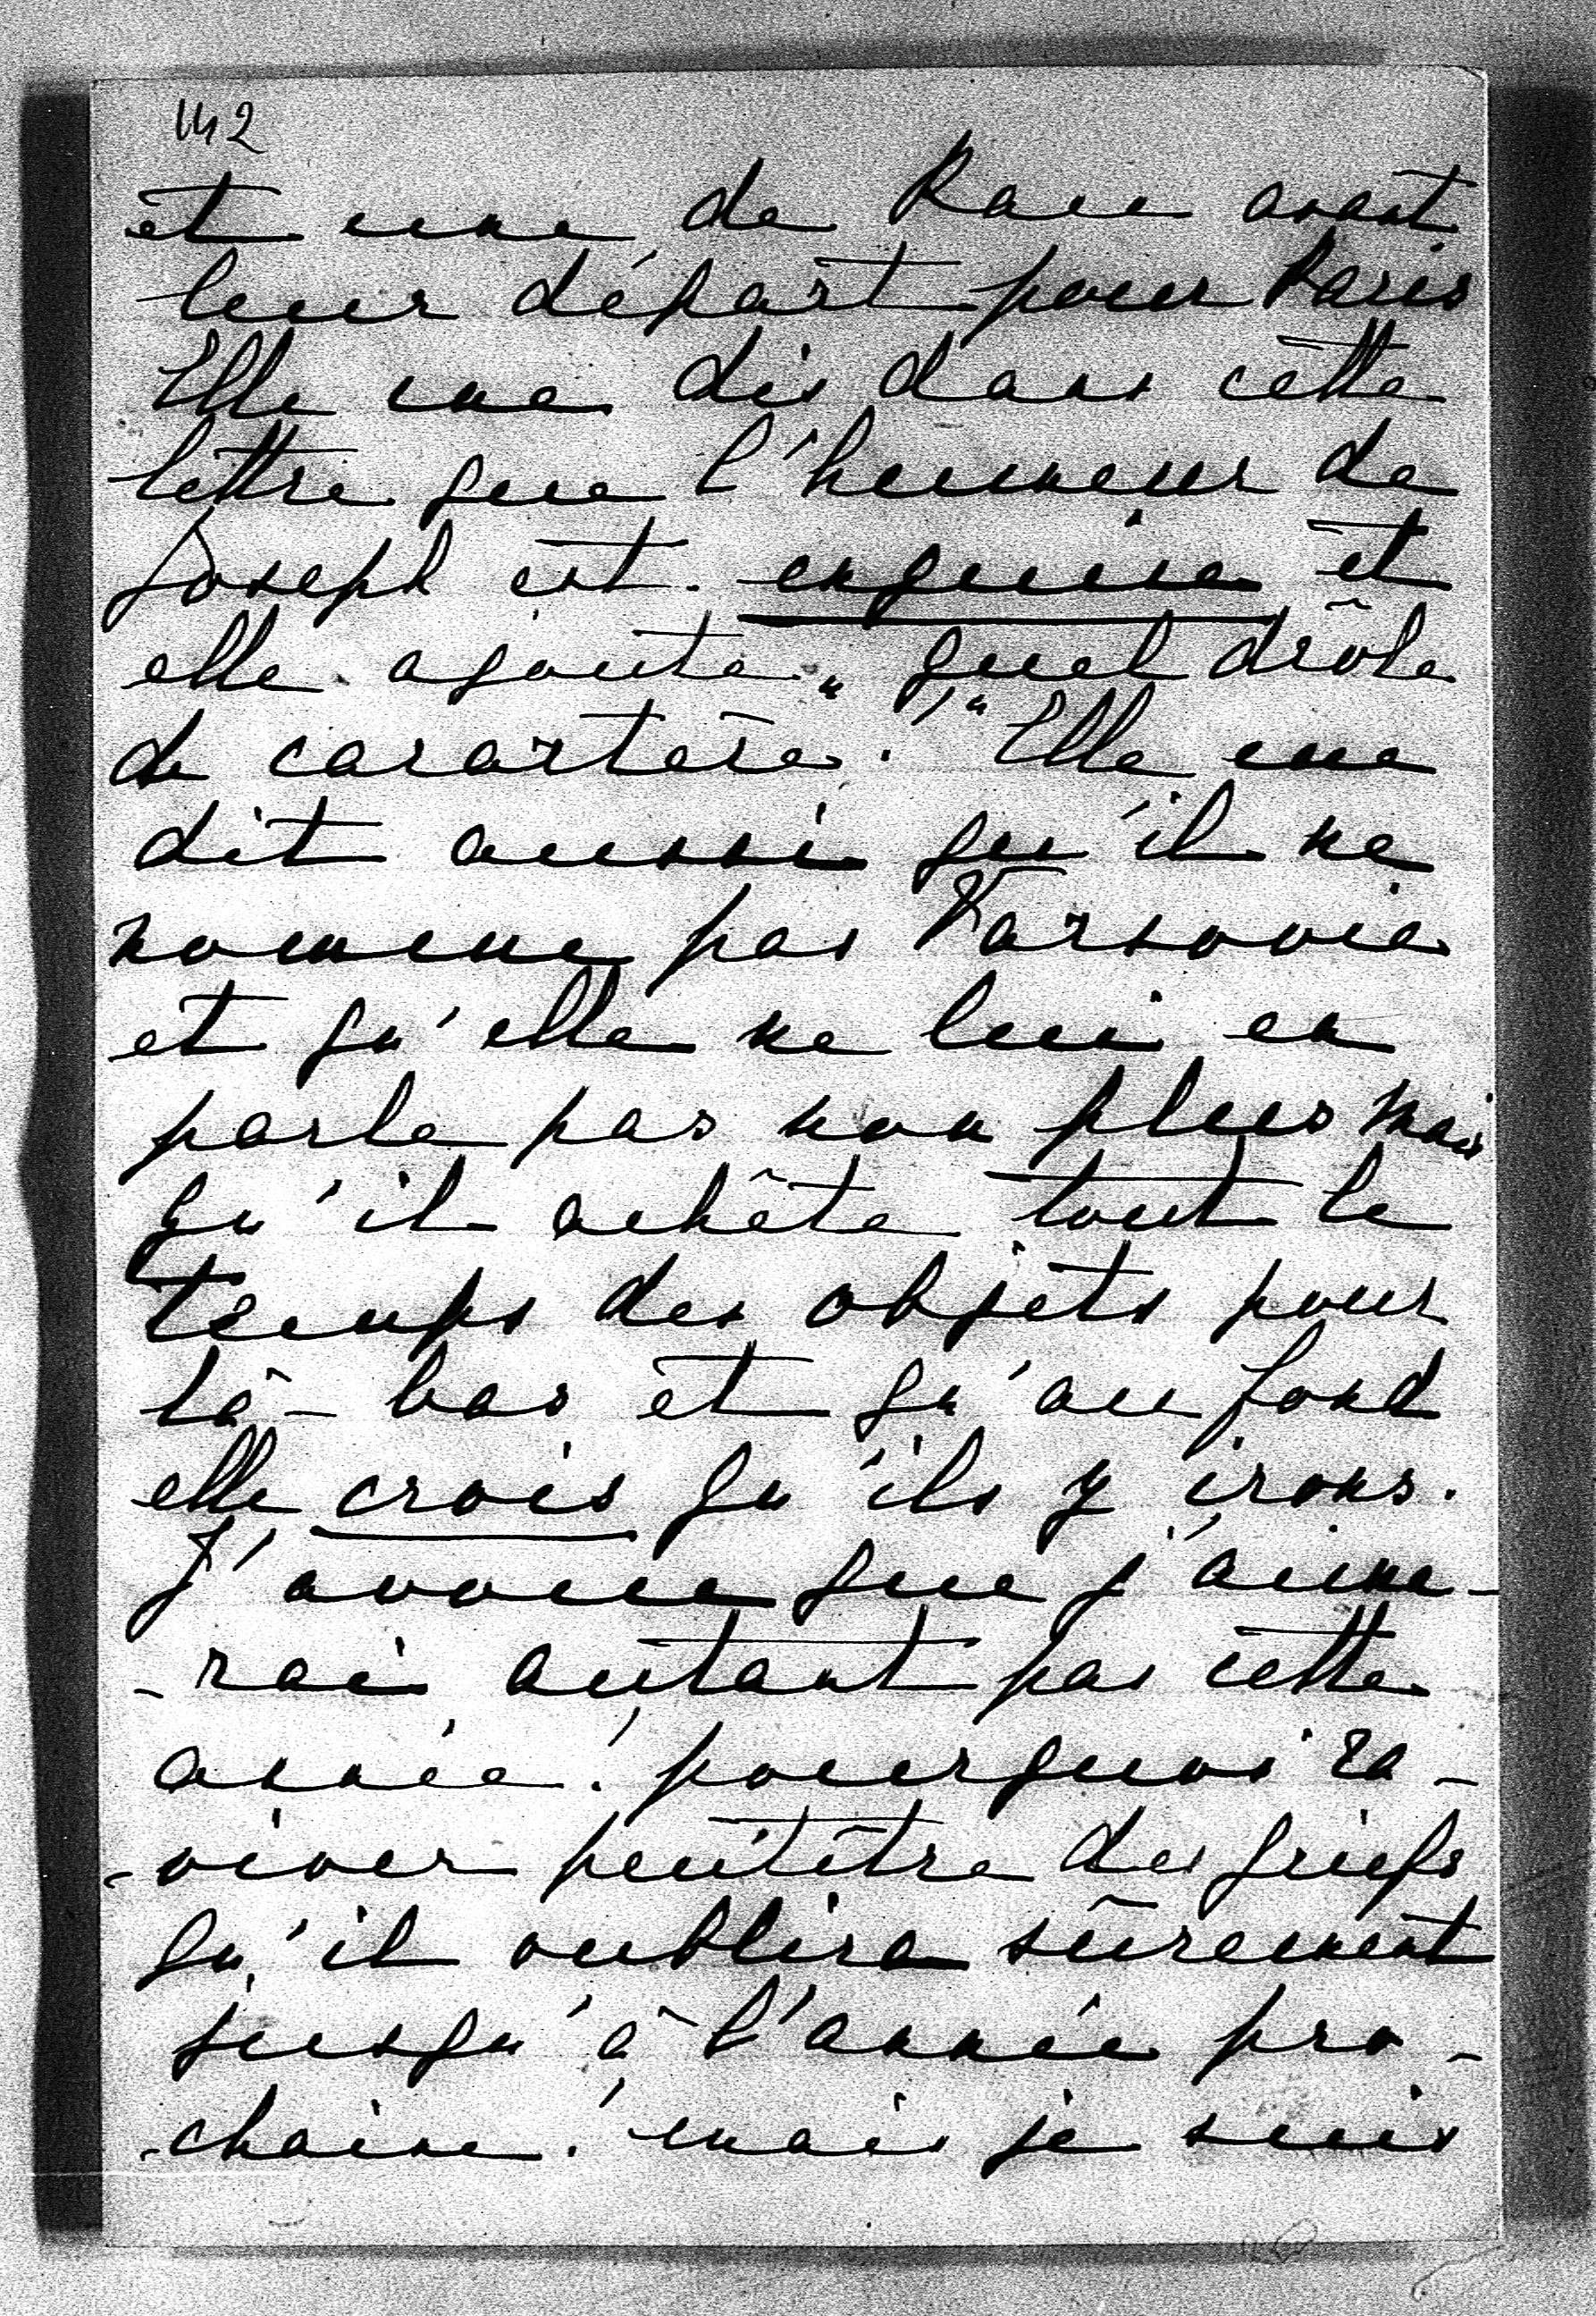 142
et une de Pau avant
leur départ pour Paris
Elle me dis dans cette
lettre que l'humeur de
Joseph est exquise et
elle ajoute „ quel drôle
de caractère !" Elle me
dit aussi qu'il ne
nomme pas Varsovie
et qu'elle ne lui en
parle pas non plus mais
qu'il achète tout le
temps des objets pour
là-bas et qu'au fond
elle crois qu'ils y irons.
J'avoue que j'aime-
-rai autant pas cette
année ! pourquoi ra-
-viver peutêtre des griefs
qu'il oublira sûrement
jusqu'à l'année pro-
-chaine ! mais je suis